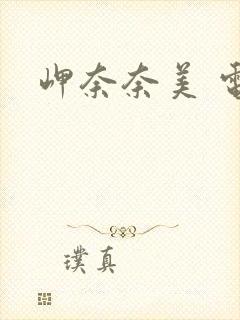 岬奈奈美 電
璞真